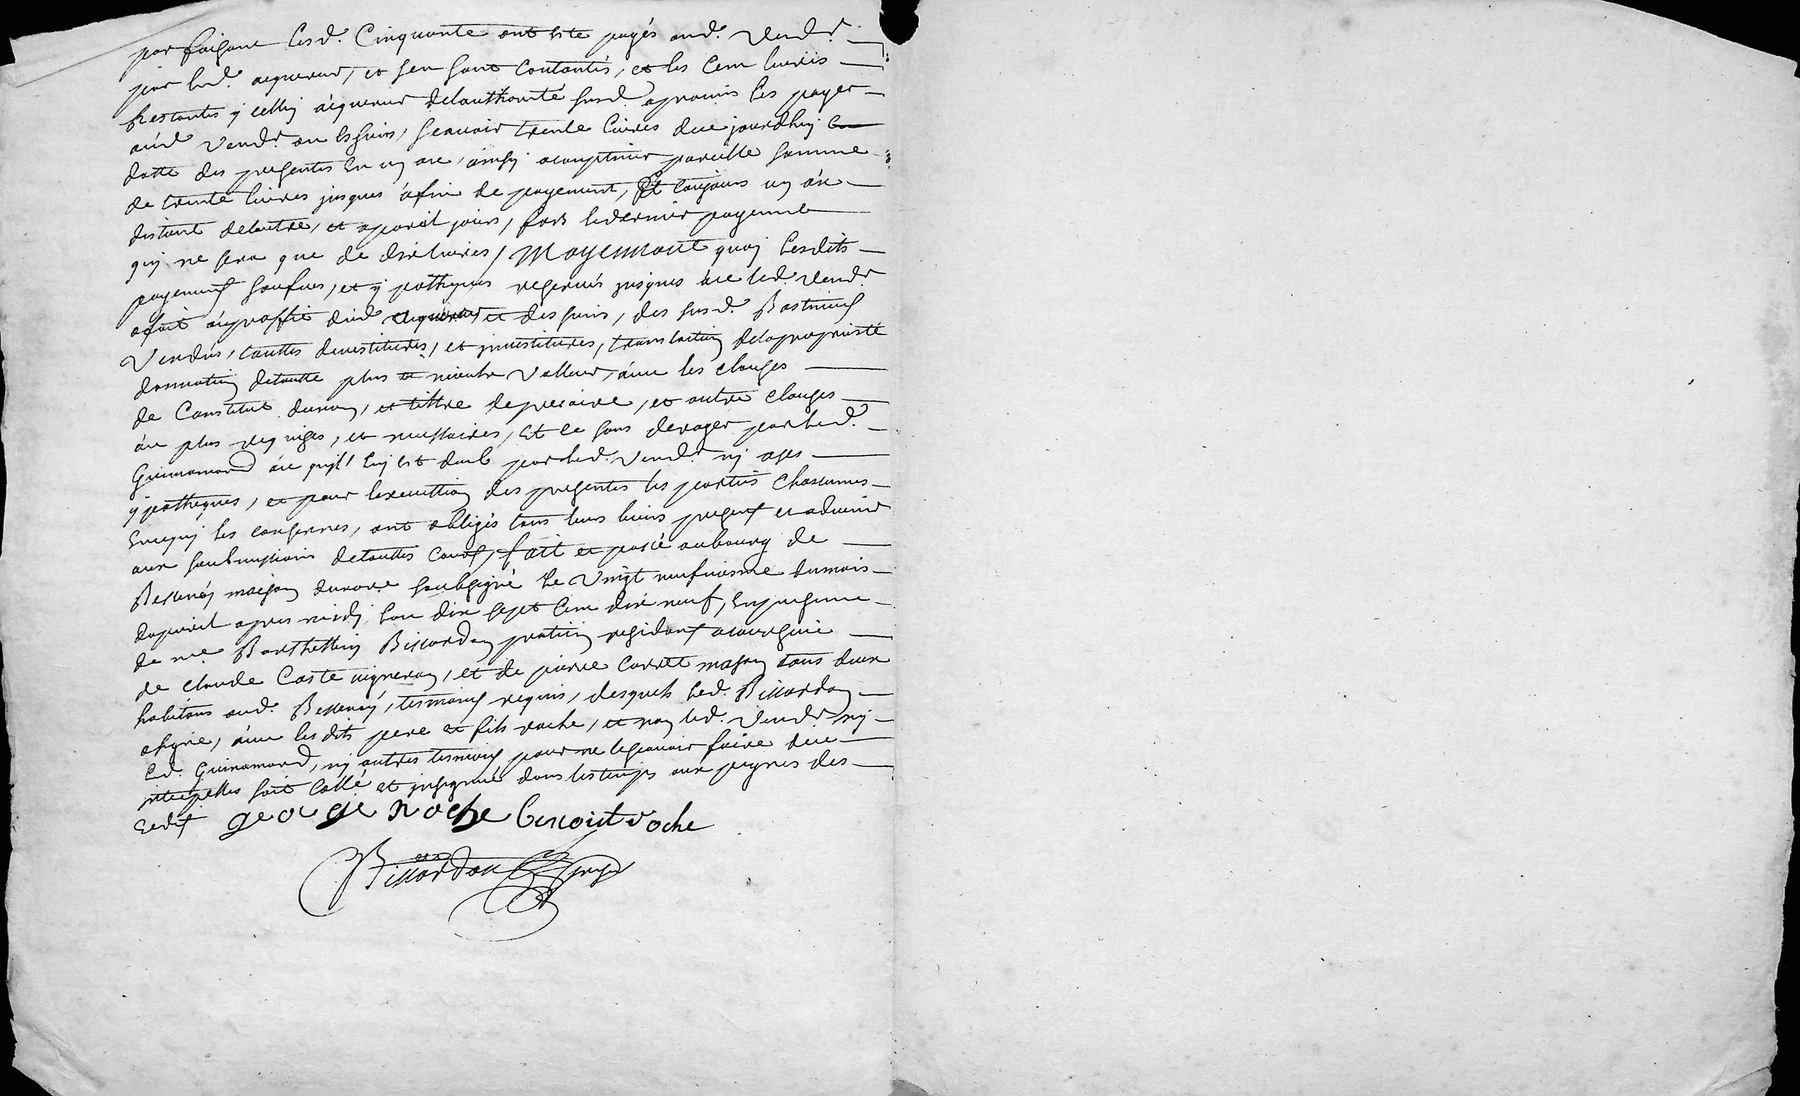 par foigane lesd. Cinquante ont esté payés aud. Vendr.
par led. aquereur, et sen sont contantés, et les Cent livres
Restantes y celluy aquereur delauthorité susd. apromis les payer
aud Vendr ou es siens, scavoir trente livres dice jourdhuy
datte des presentes En un an, ainsy acontinuer pareille somme
de trente livres jusques afin de payement, Et toujours un an
distant delautre, et apareil jours, fors ledernier payement
quy ne sera que de dix livres, Moyennant quoy lesdits
payements soufins, et ypotheques reservés jusques ace led. Vendr
afait auproffit dud aquereur et des siens, des susd. Bastiments
Vendus, touttes devestitures, et investitures, translation delapropriete
donnation detoutte plus et mieux Valleur, avec les clauses
de Constitut dunom, et tiltre deprecaire, et autre clauses
au plus requises, et nessaires, Et ce sans deroger par led.
Guinamand ace quil luy est deub par led. Vendr ny ases
ypotheques, et pour lexecution des presentes les parties chascunes
Encequy les consernes, ont obligés tous leurs biens presents et advenir
aux soubmissions detouttes Cours, fait et passé aubourg de
Bessenay maison dunore soubsigné Le Vingt neufviesme dumois
dapvril apres midy Lan dix sept Cent dix neuf, Enpresence
de me. Barthellemy Bissardon praticien residant
de claude Coste vigneron, et de pierre masson tous deux
habitans aud. Bessenay, tesmoins requis, desquels led. Bissardon
asigné, avec lesdits pere et fils roche, et non led. Vendr ny
led. Guinamand, ny autres tesmoins pour ne lescavoir faire dece
interpellés soit Collé et insignué dans lestemps aux peynes des
Edits george Roche benoist roche
Bissardon